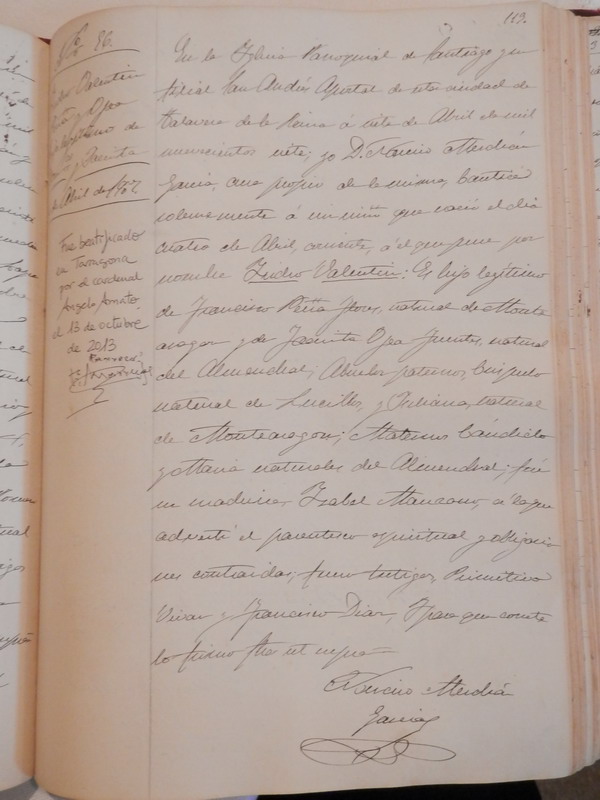 119.
Nº 86.
Isidro Valentin
Peña y Ojea
de
y Jacinta
Abril de 1907
Fue beatificado
en Tarragona
por el cardenal
Angelo Amato
el 13 de octubre
de 2013
Párroco,
En la Iglesia Parroquial de Santiago y su
filial San Andrés Apostol de esta ciudad de
Talavera de la Reina á siete de Abril de mil
novecientos siete; yo D. Narciso Merchán
Garcia, cura propio de la misma, bauticé
solemnemente á un niño que nació el dia
cuatro de Abril, corriente, á el que puse por
nombre Isidro Valentin: Es hijo legítimo
de Francisco Peña Flores, natural de Monte
aragon y de Jacinta Ojea Fuentes, natural
del Almendral; Abuelos paternos,
natural de Lucillos, y Juliana, natural
de Montearagon; Maternos Cándido
y Maria naturales del Almendral; fué
su madrina, Isabel Manzano, á la que
advertí el parentesco espiritual y obligacio
nes contraidas; fueron testigos, Primitivo
Vivar y Francisco Diaz, Y para que conste
lo firmo fha ut supra=
Narciso Merchán
Garcia